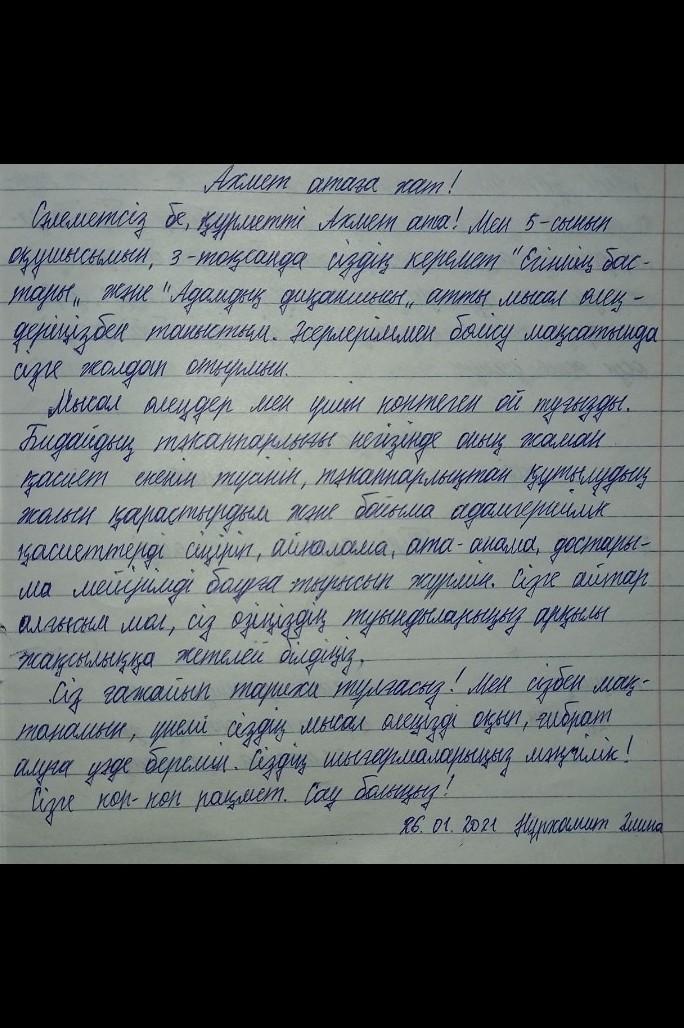 Ахмет атаға хат!
Сәлеметсіз бе, құрметті Ахмет ата! Мен 5-сынып
оқушысымын, 3-тоқсанда сіздің керемет "Егіннің бас-
тары„ және "Адамдық диқаншысы„ атты мысал өлең-
деріңізбен таныстым. Әсерлеріммен бөлісу мақсатында
сізге жолдап отырмын.
Мысал өлеңдер мен үшін көптеген ой туғызды.
Бидайдың тәкаппарлығы негізінде оның жаман
қасиет екенін түсініп, тәкаппарлықтан құтылудың
жолын қарастырдым және бойыма адамгершілік
қасиеттерді сіңіріп, айналама, ата-анама, достары-
ма мейірімді болуға тырысып жүрмін. Сізге айтар
алғысым мол, сіз өзіңіздің туындыларыңыз арқылы
жақсылыққа жетелей білдіңіз.
Сіз ғажайып тарихи тұлғасыз! Мен сізбен мақ-
танамын, үнемі сіздің мысал өлеңізді оқып, ғибрат
алуға уәде беремін. Сіздің шығармаларыңыз мәңгілік!
Сізге көп-көп рақмет. Сау болыңыз!
26.01.2021 Нұрхамит